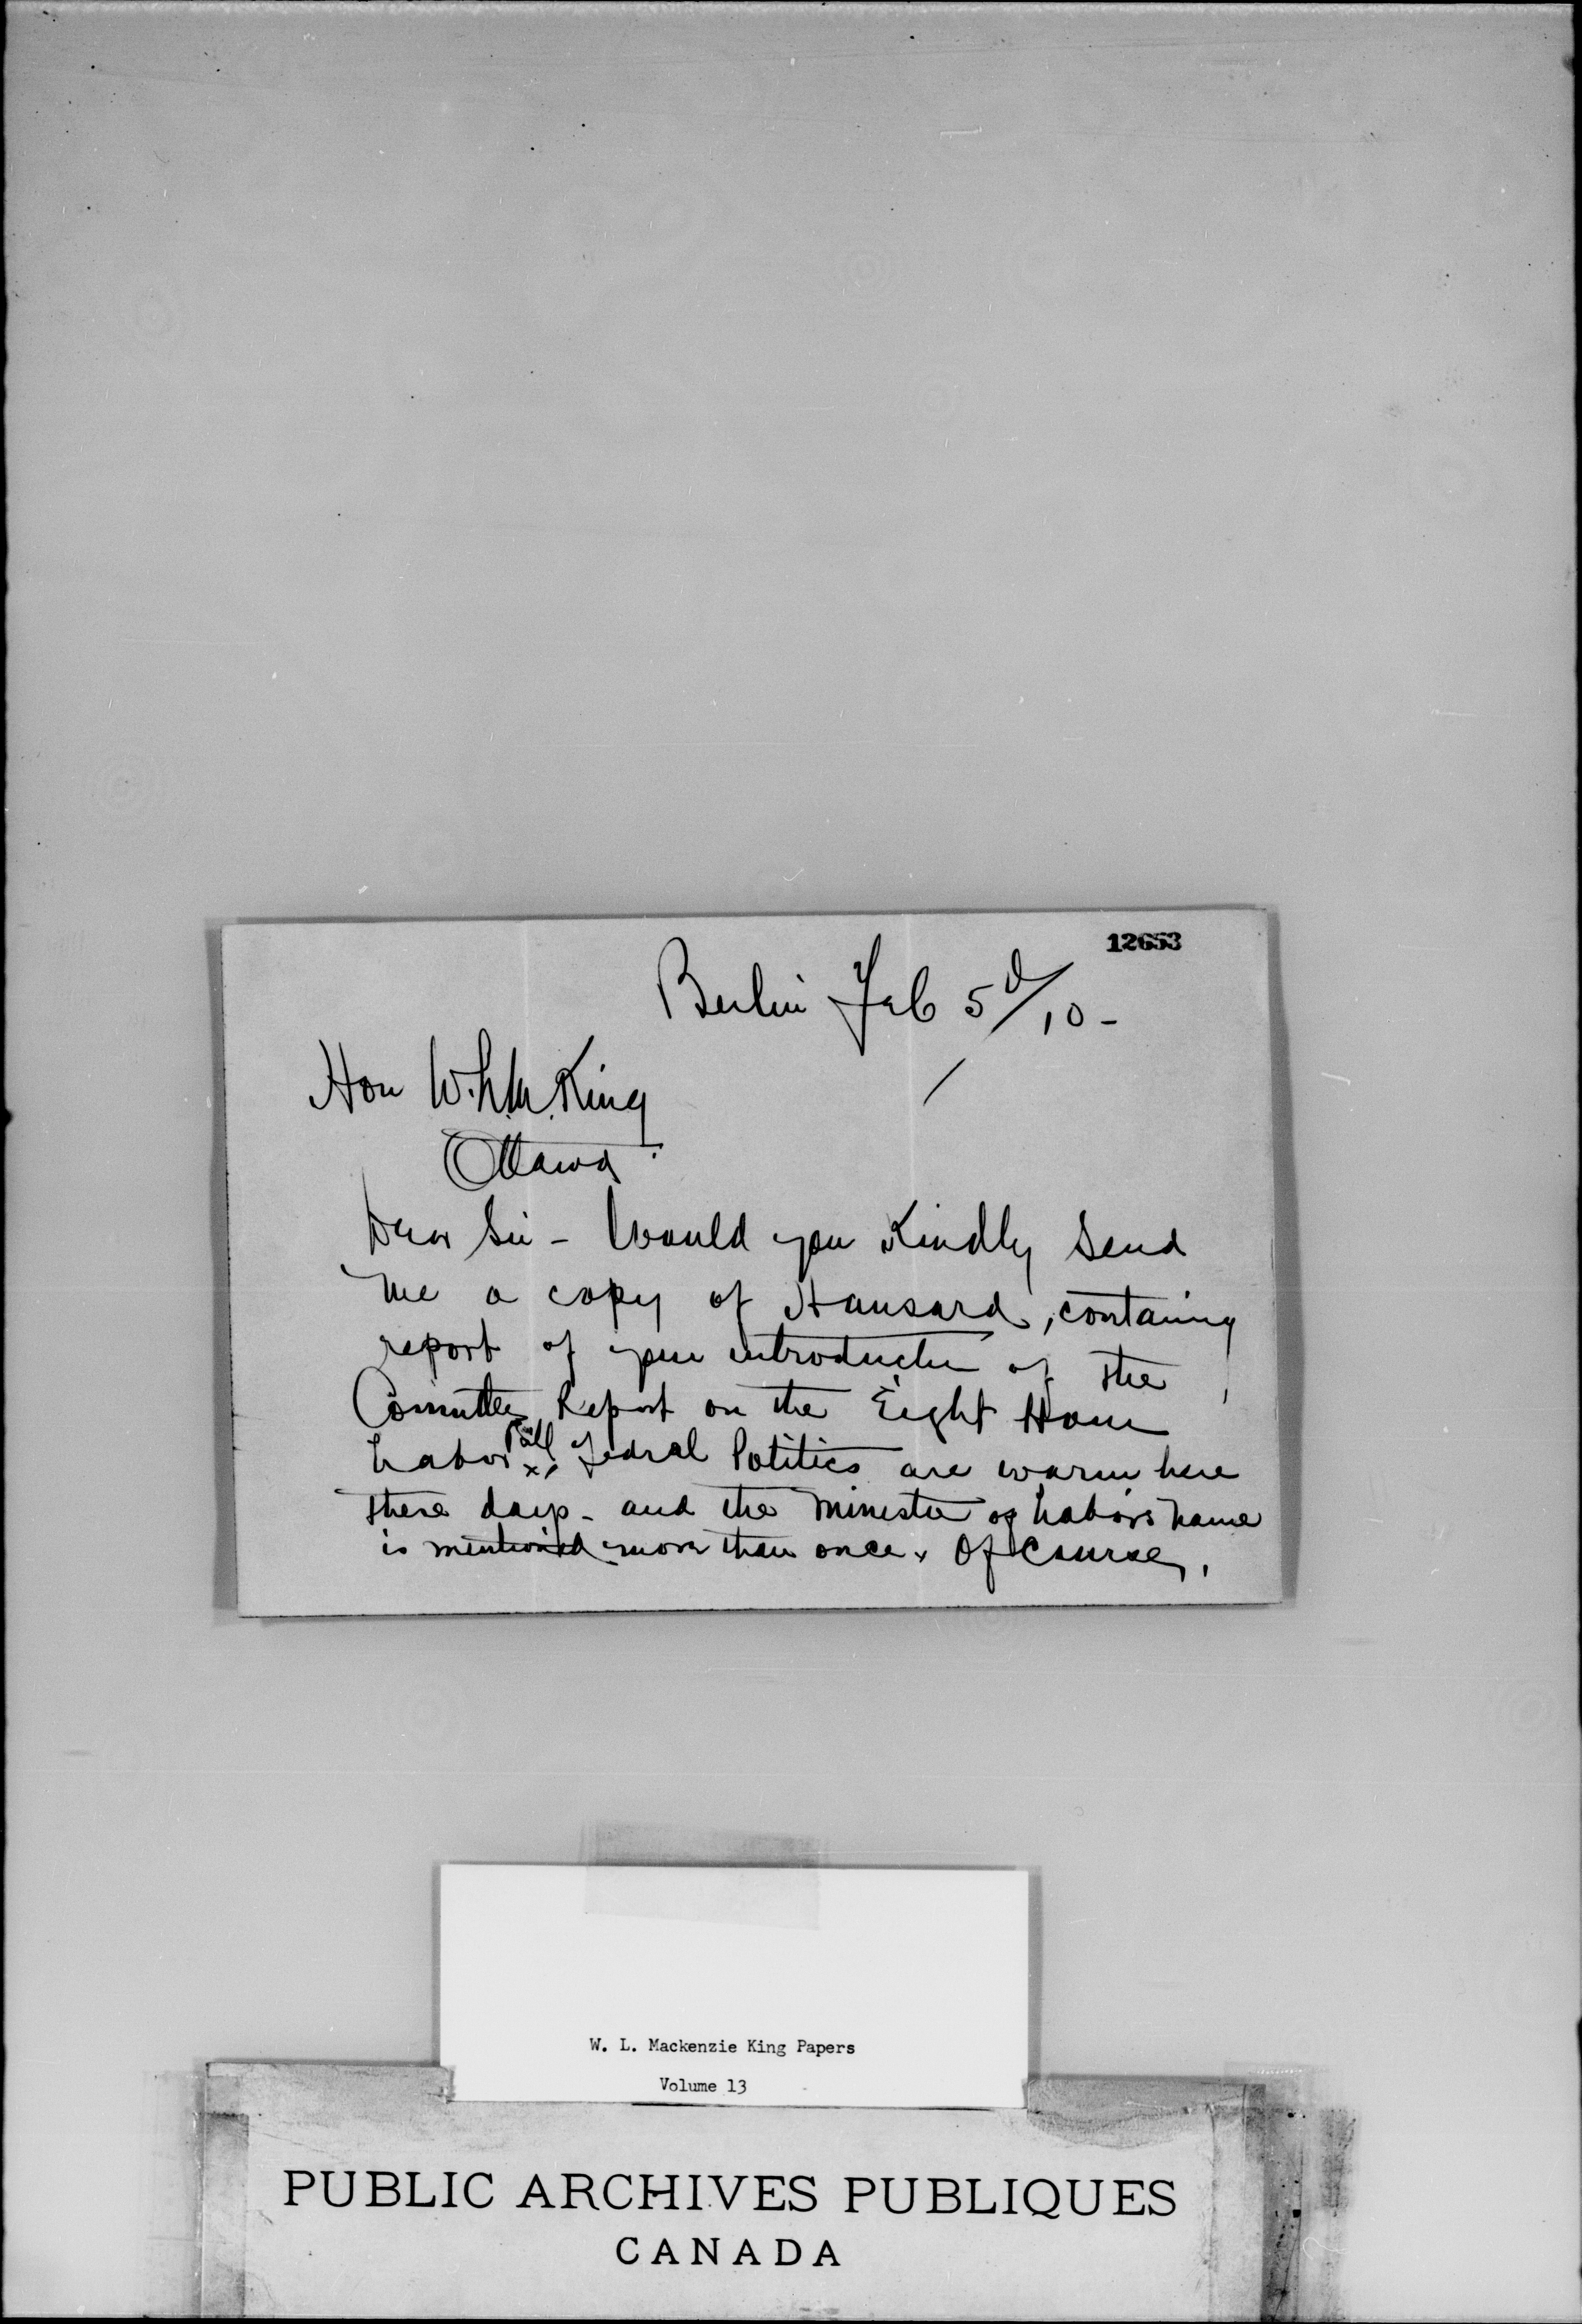 12653
Berlin Feb 5th/10-
Hon W.L.M. King
Ottawa
Dear Sir - Would you Kindly Send
me a copy of Hansard, containing
report of your introduction of the
Committee Report on the Eight Hour
Labor Bill x. Fedral Politics are warm here
these days - and the Minister of Labors name
is mentioned more than once. Of Course,
W. L. Mackenzie King Papers
Volume 13
PUBLIC ARCHIVES PUBLIQUES
CANADA